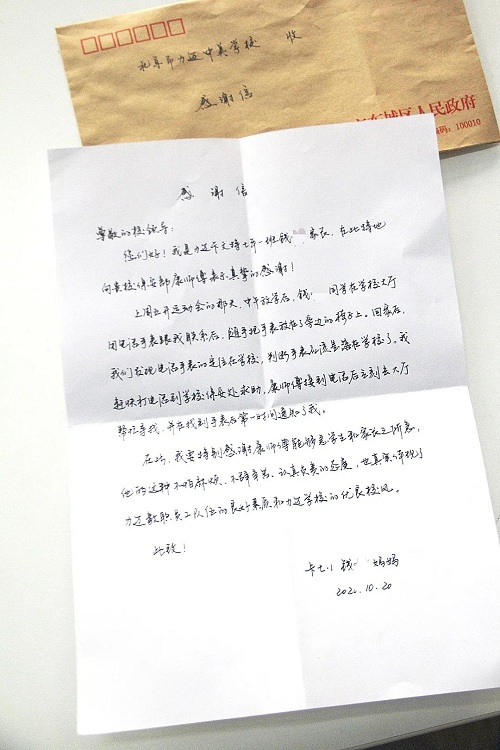 北京市力迈中美学校 收
感谢信
东城区人民政府
编码：100010
感谢信
尊敬的校领导：
您们好！我是力迈卡文特七年一班钱 家长，在此特地
向贵校保安部康师傅表示真挚的感谢！
上周五开运动会的那天，中午放学后，钱 同学在学校大厅
用电话手表跟我联系后，随手把手表放在了旁边的椅子上。回家后，
我们发现电话手表的定位在学校，判断手表应该是落在学校了，我
赶快打电话到学校保安处求助，康师傅接到电话后立刻去大厅
帮忙寻找，并在找到手表后第一时间通知了我。
在此，我要特别感谢康师傅能够急学生和家长之所急，
他的这种不怕麻烦、不辞辛苦、认真负责的态度，也真实体现了
力迈教职员工队伍的良好素质和力迈学校的优良校风。
此致！
卡七.1 钱 妈妈
10.20